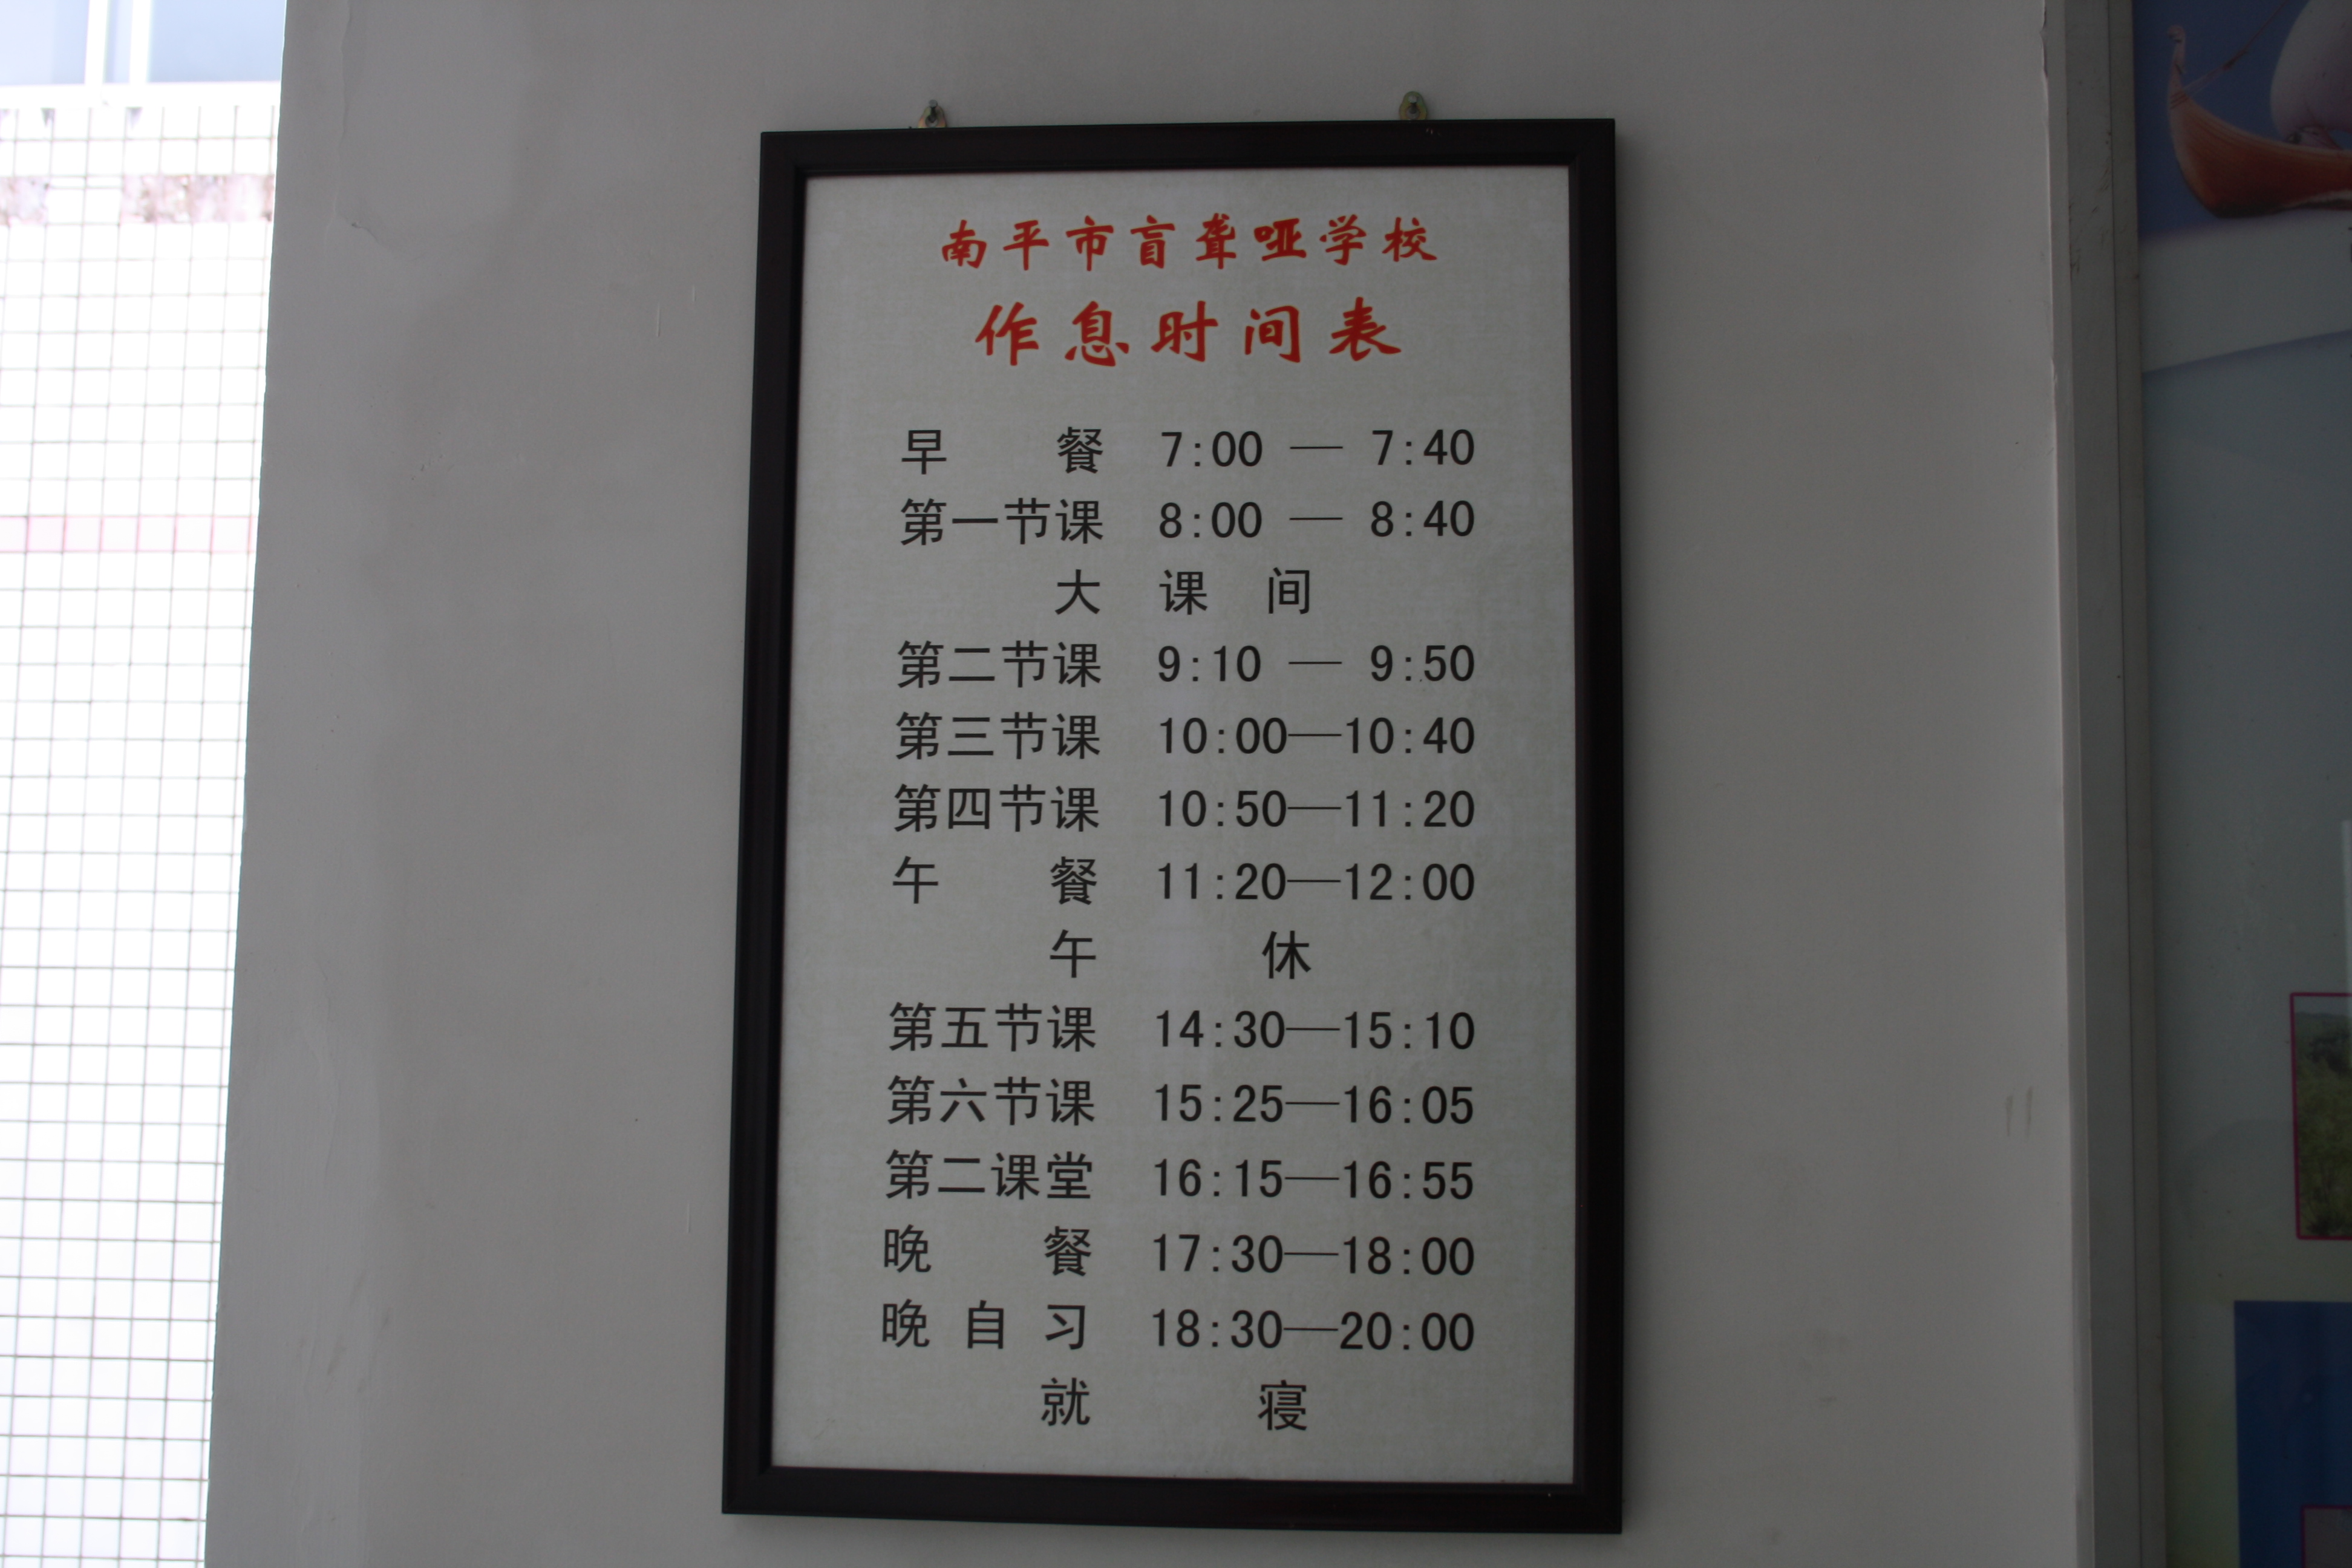 南平市盲聋哑学校
作息时间表
早 餐 7:00 — 7:40
第一节课 8:00 — 8:40
大 课 间
第二节课 9:10 — 9:50
第三节课 10:00—10:40
第四节课 10:50—11:20
午 餐 11:20—12:00
午 休
第五节课 14:30—15:10
第六节课 15:25—16:05
第二课堂 16:15—16:55
晚 餐 17:30—18:00
晚 自 习 18:30—20:00
就 寝